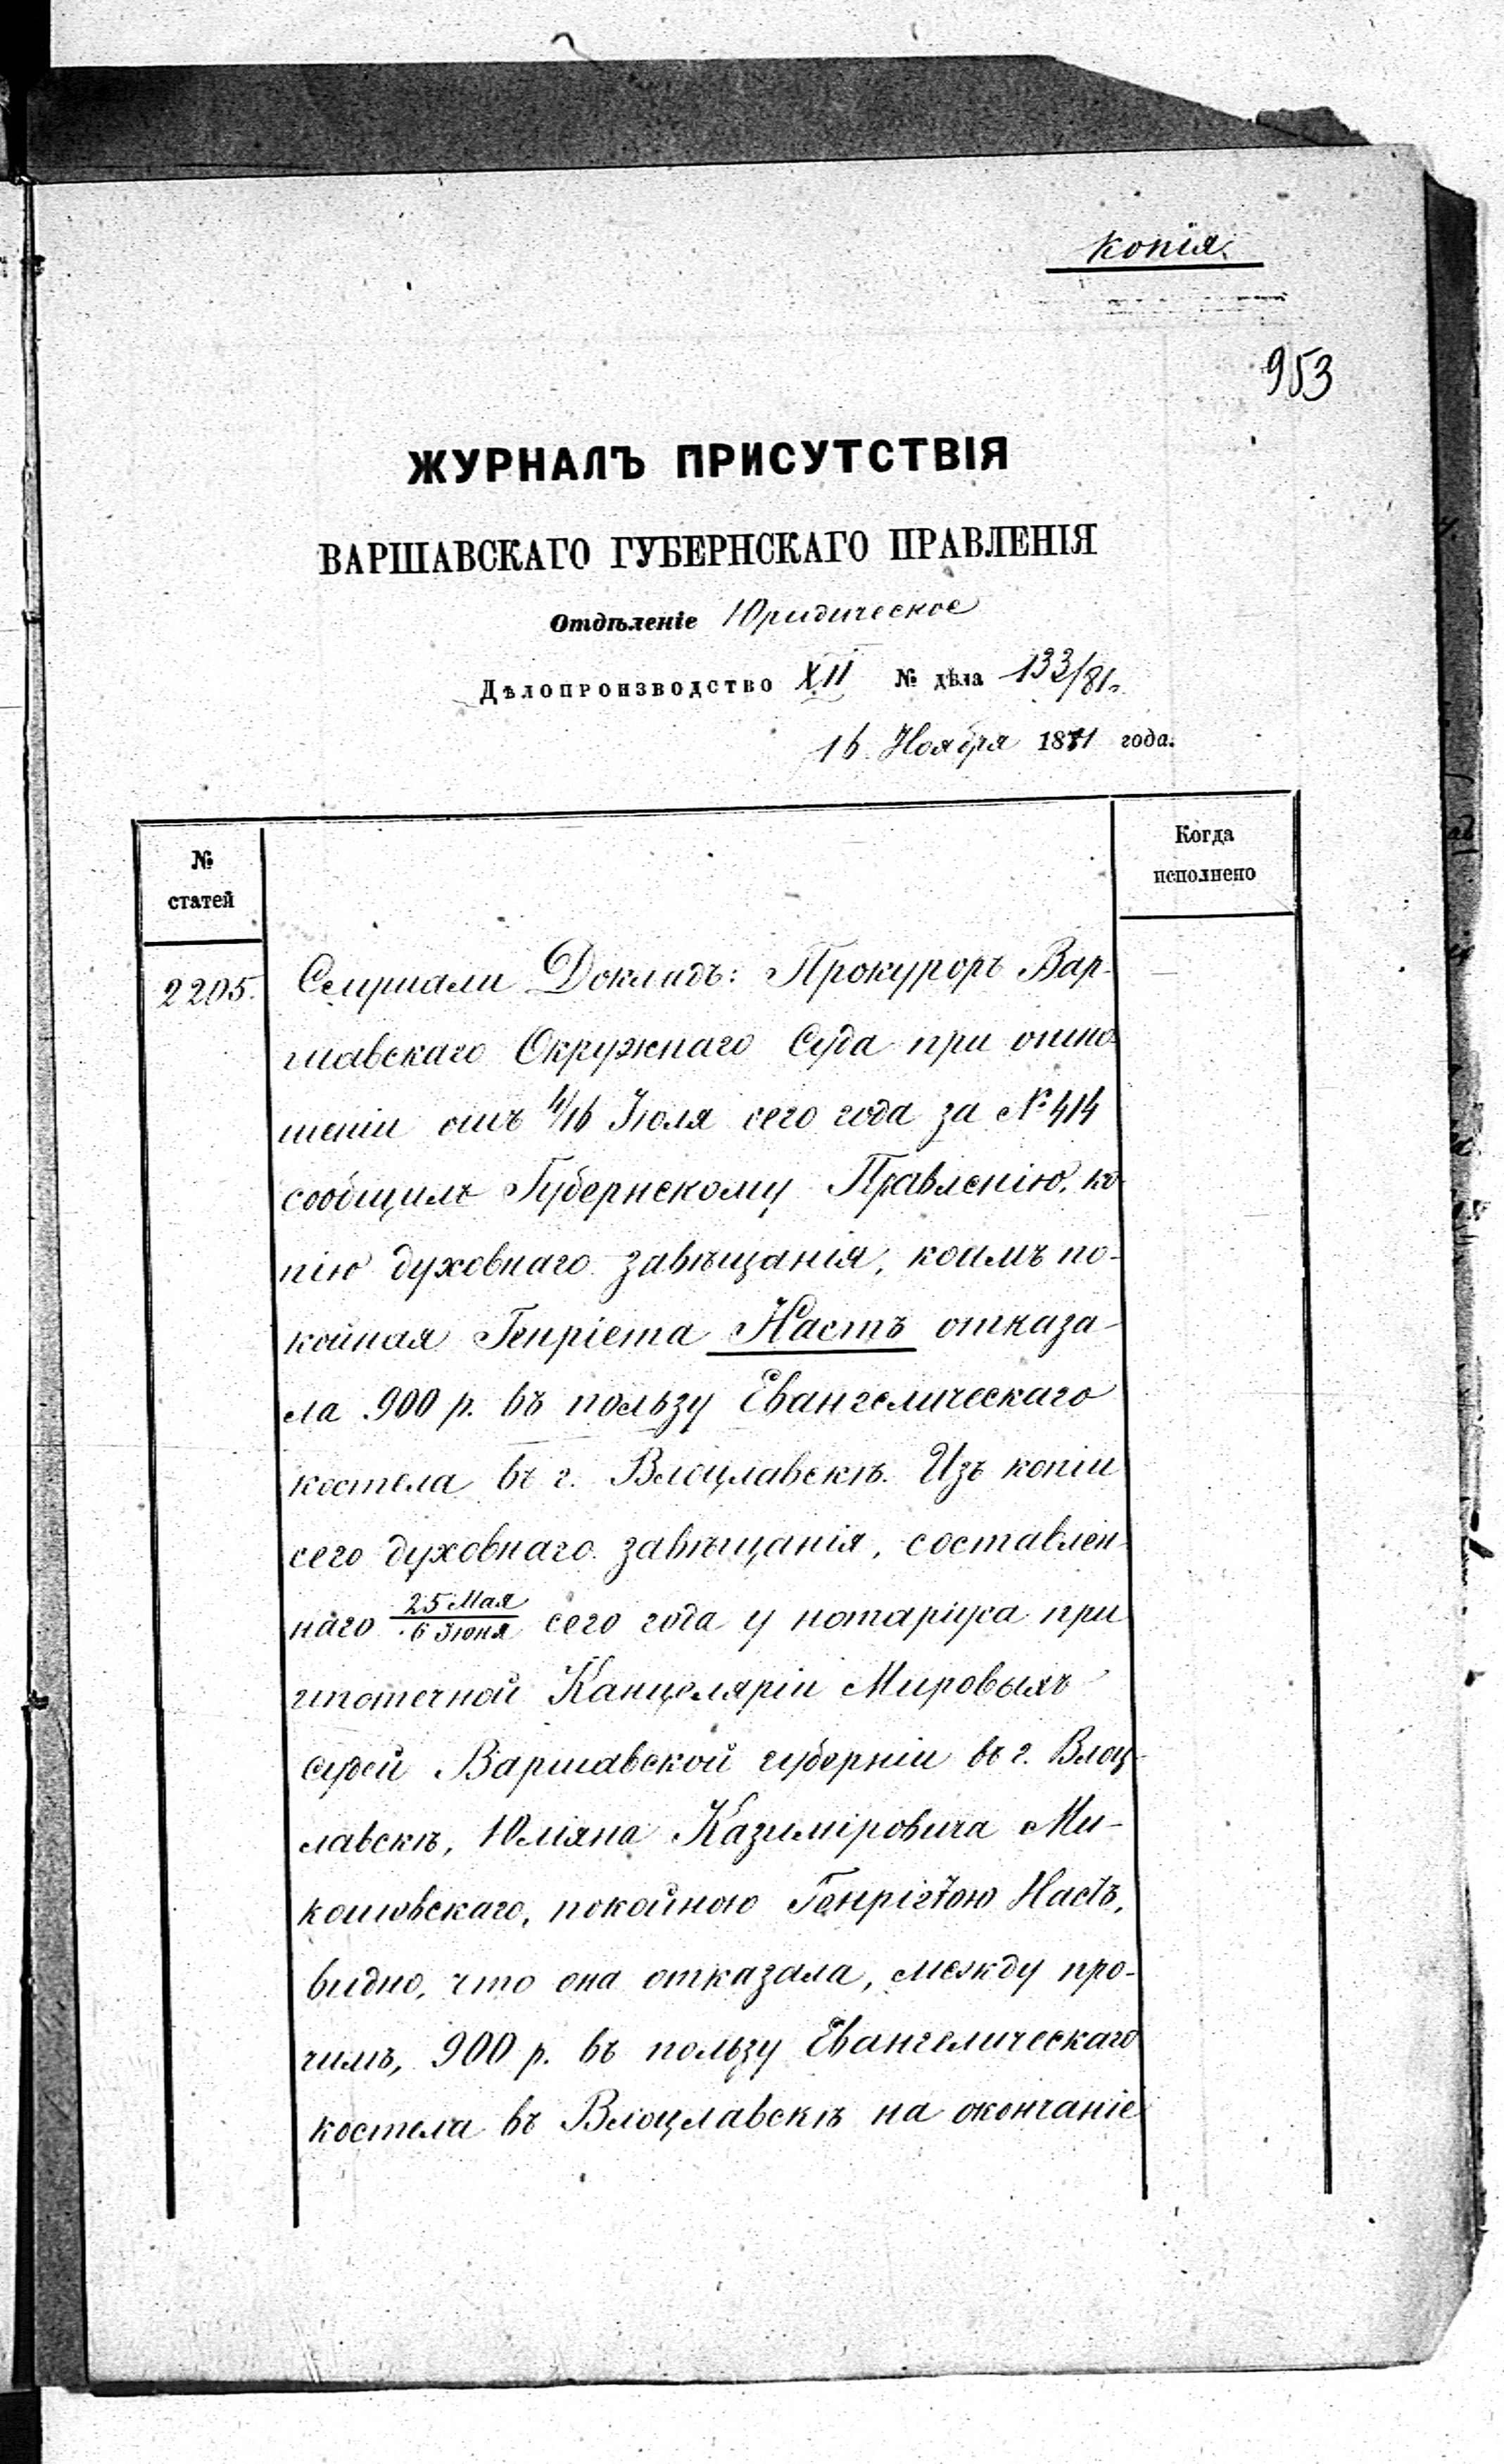 Копія.
953
ЖУРНАЛЪ ПРИСУТСТВІЯ
ВАРШАВСКАГО ГУБЕРНСКАГО ПРАВЛЕНІЯ
Отдѣленіе Юридическое
Дѣлопроизводство XII № дѣла 133/81.
16 Ноября 1881 года.
№
статей
Когда
исполнено
2205. Слушали Докладъ: Прокуроръ Вар-
шавскаго Окружнаго Суда при отно-
шеніи отъ 4/16 Іюля сего года за № 414
сообщилъ Губернскому Правленію, ко-
пію духовнаго завѣщанія, коимъ по-
койная Генріета Настъ отказа-
ла 900 р. въ пользу Евангелическаго
костела въ г. Влоцлавскѣ. Изъ копіи
сего духовнаго завѣщанія, составлен-
наго 25 Мая/6 Іюня сего года у нотаріуса при
ипотечной Канцеляріи Мировыхъ
Судей Варшавской губерніи въ г. Влоц-
лавскѣ, Юліяна Казиміровича Ми-
кошевскаго, покойною Генріетою Настъ,
видно, что она отказала, между про-
чимъ, 900 р. въ пользу Евангелическаго
костела въ Влоцлавскѣ на окончаніе